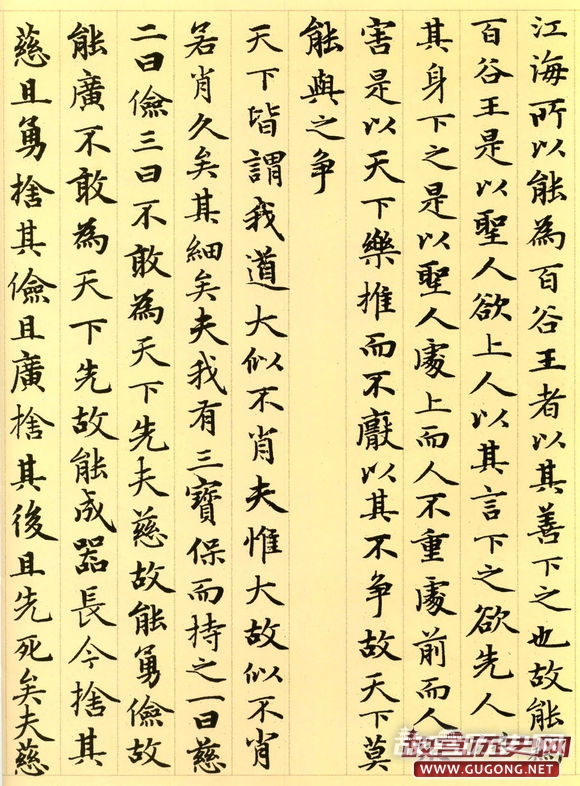 江海所以能為百谷王者以其善下之也故能為
百谷王是以聖人欲上人以其言下之欲先人以
其身下之是以聖人處上而人不重處前而人不
害是以天下樂推而不厭以其不争故天下莫
能與之争
天下皆謂我道大似不肖夫惟大故似不肖
若肖久矣其細矣夫我有三寶保而持之一曰慈
二曰儉三曰不敢為天下先夫慈故能勇儉故
能廣不敢為天下先故能成器長今捨其
慈且勇捨其儉且廣捨其後且先死矣夫慈
故宫历史网
www.GUGONG.net